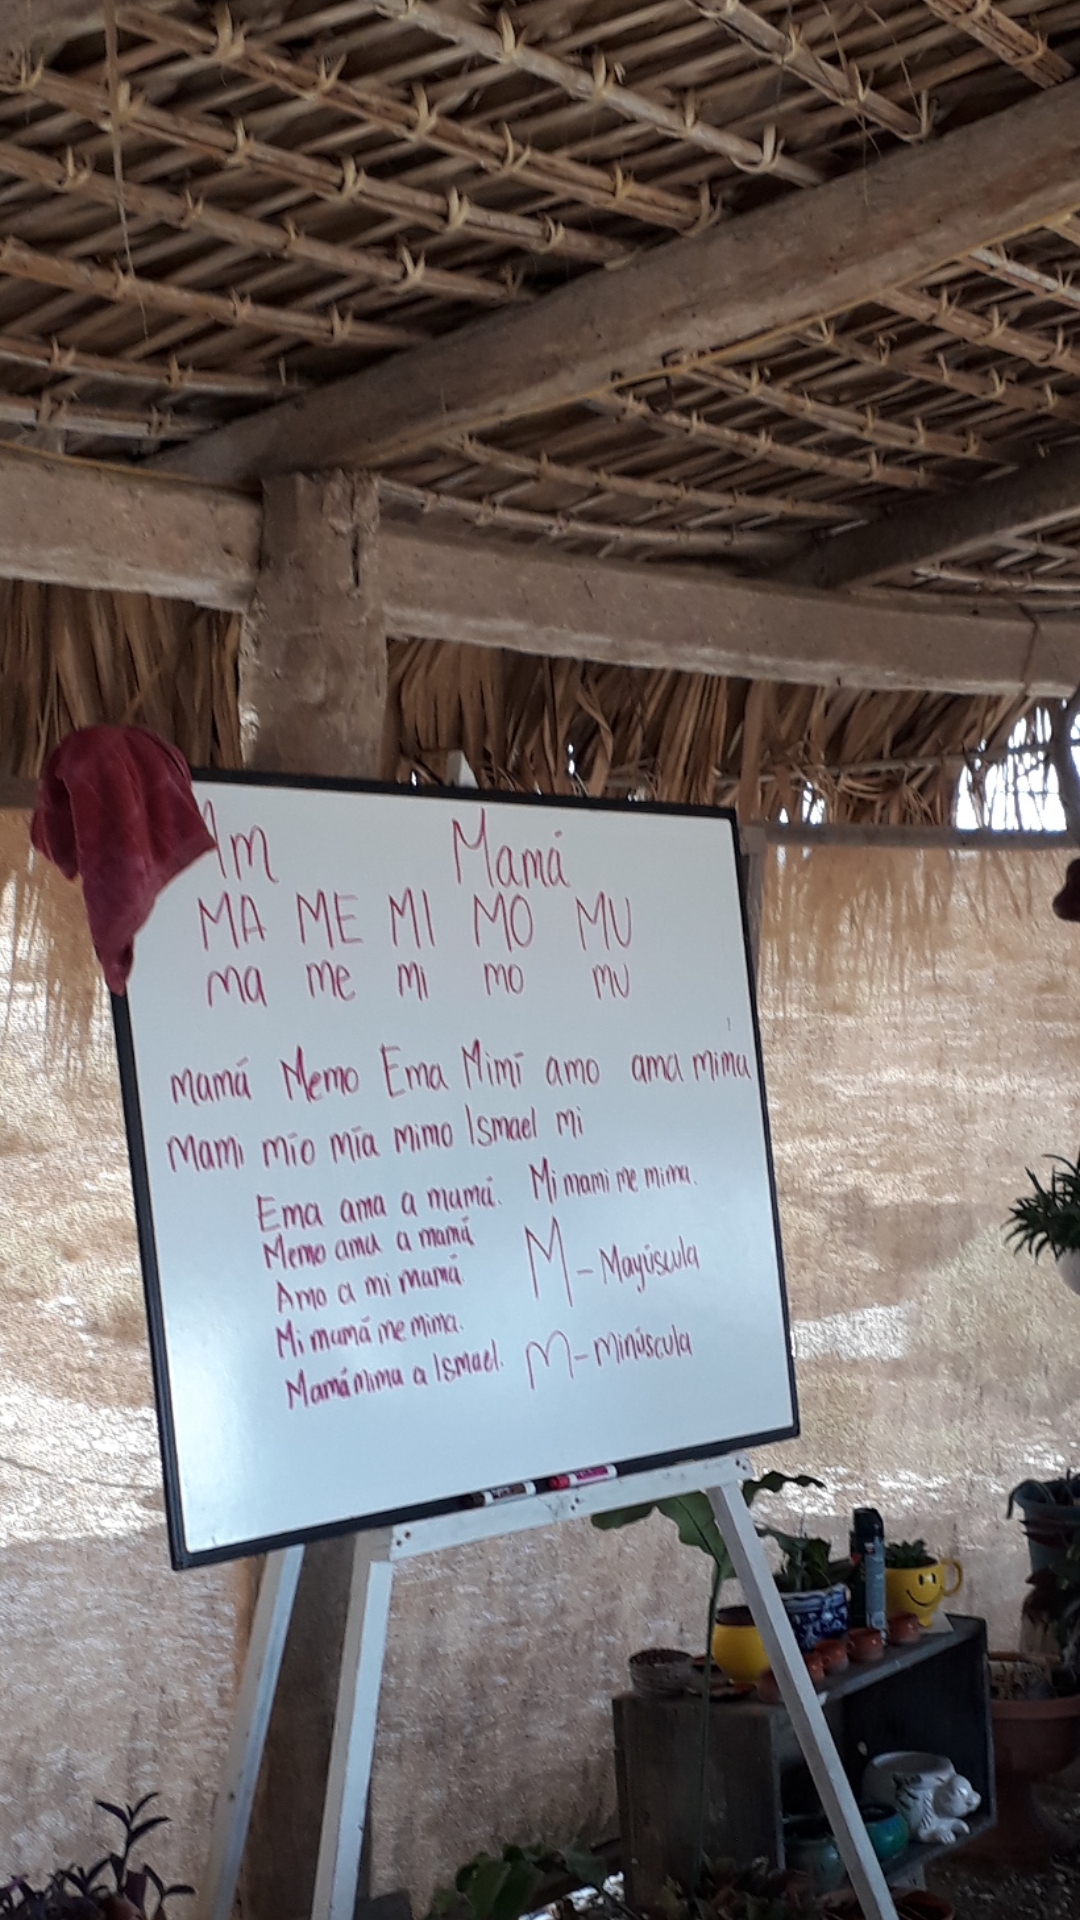 Mm Mamá
MA ME MI MO MU
ma me mi mo mu
mamá Memo Ema Mimí amo ama mima
Mami mío mía mimo Ismael mi
Ema ama a mamá. Mi mami me mima.
Memo ama a mamá
Amo a mi mamá.
Mi mamá me mima.
Mamá mima a Ismael.
M - Mayúscula
m - minúscula